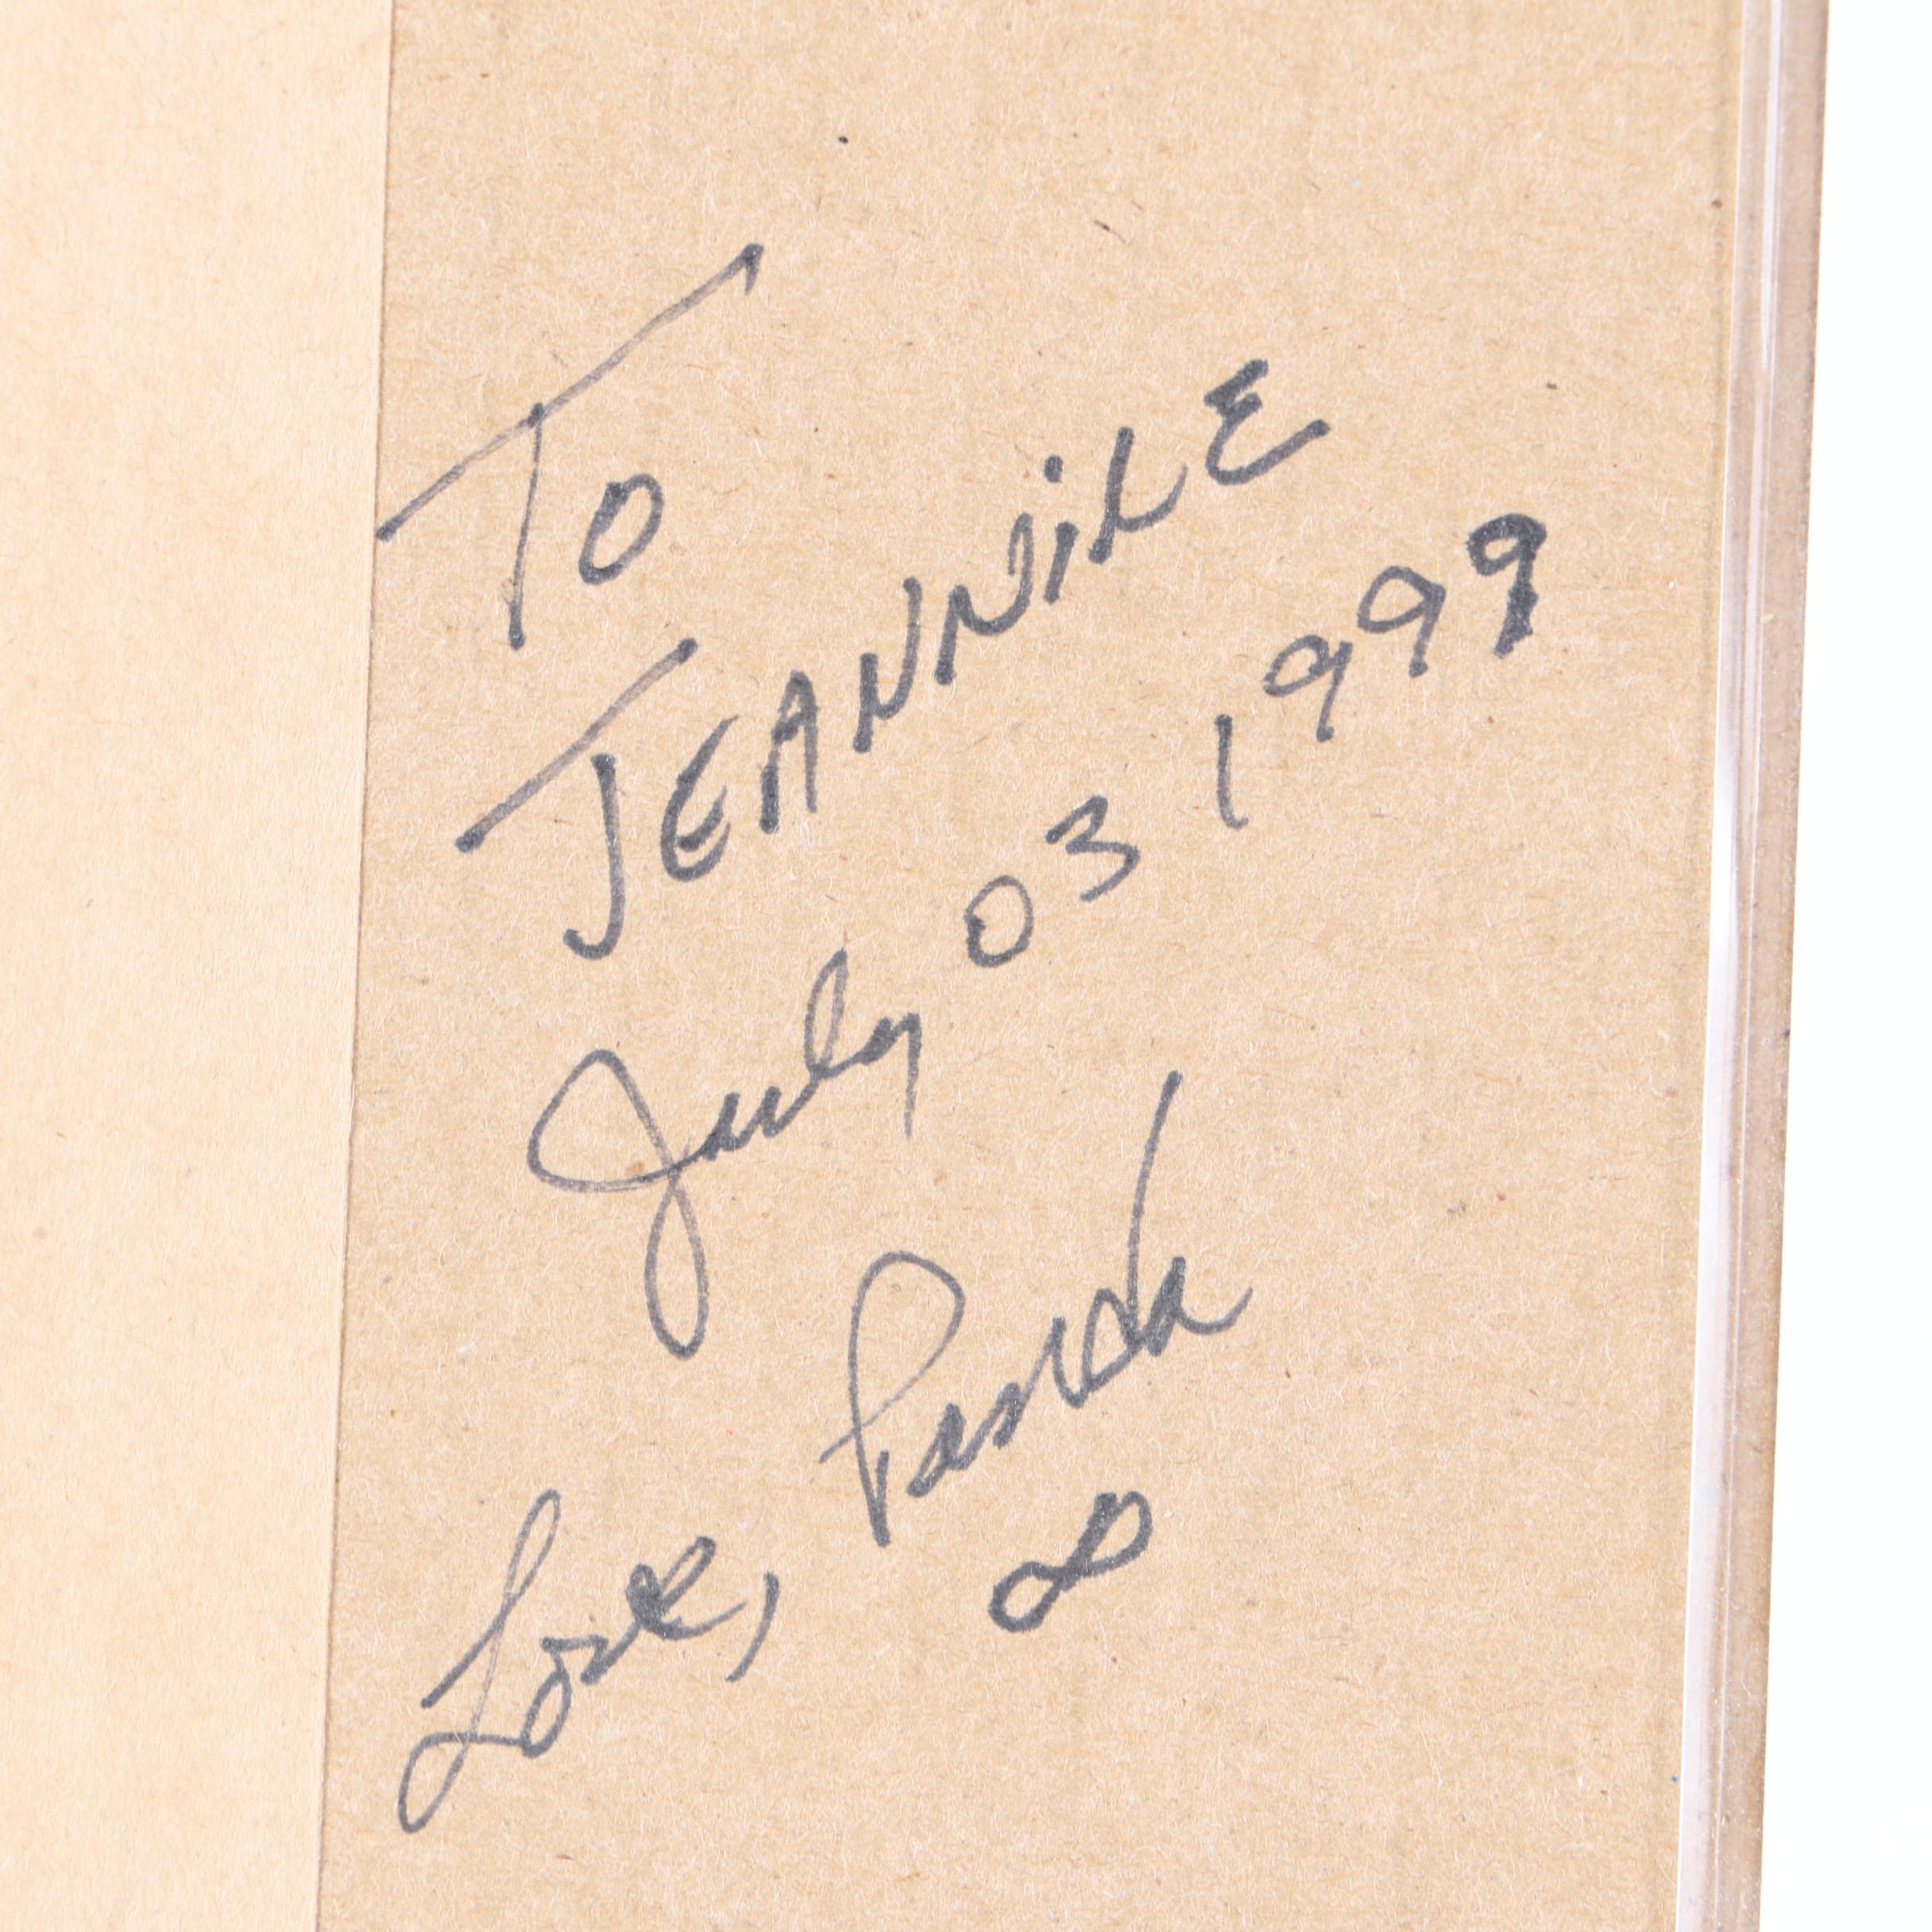 To
JEANNiLE
July 03 1999
Love, Panda
∞